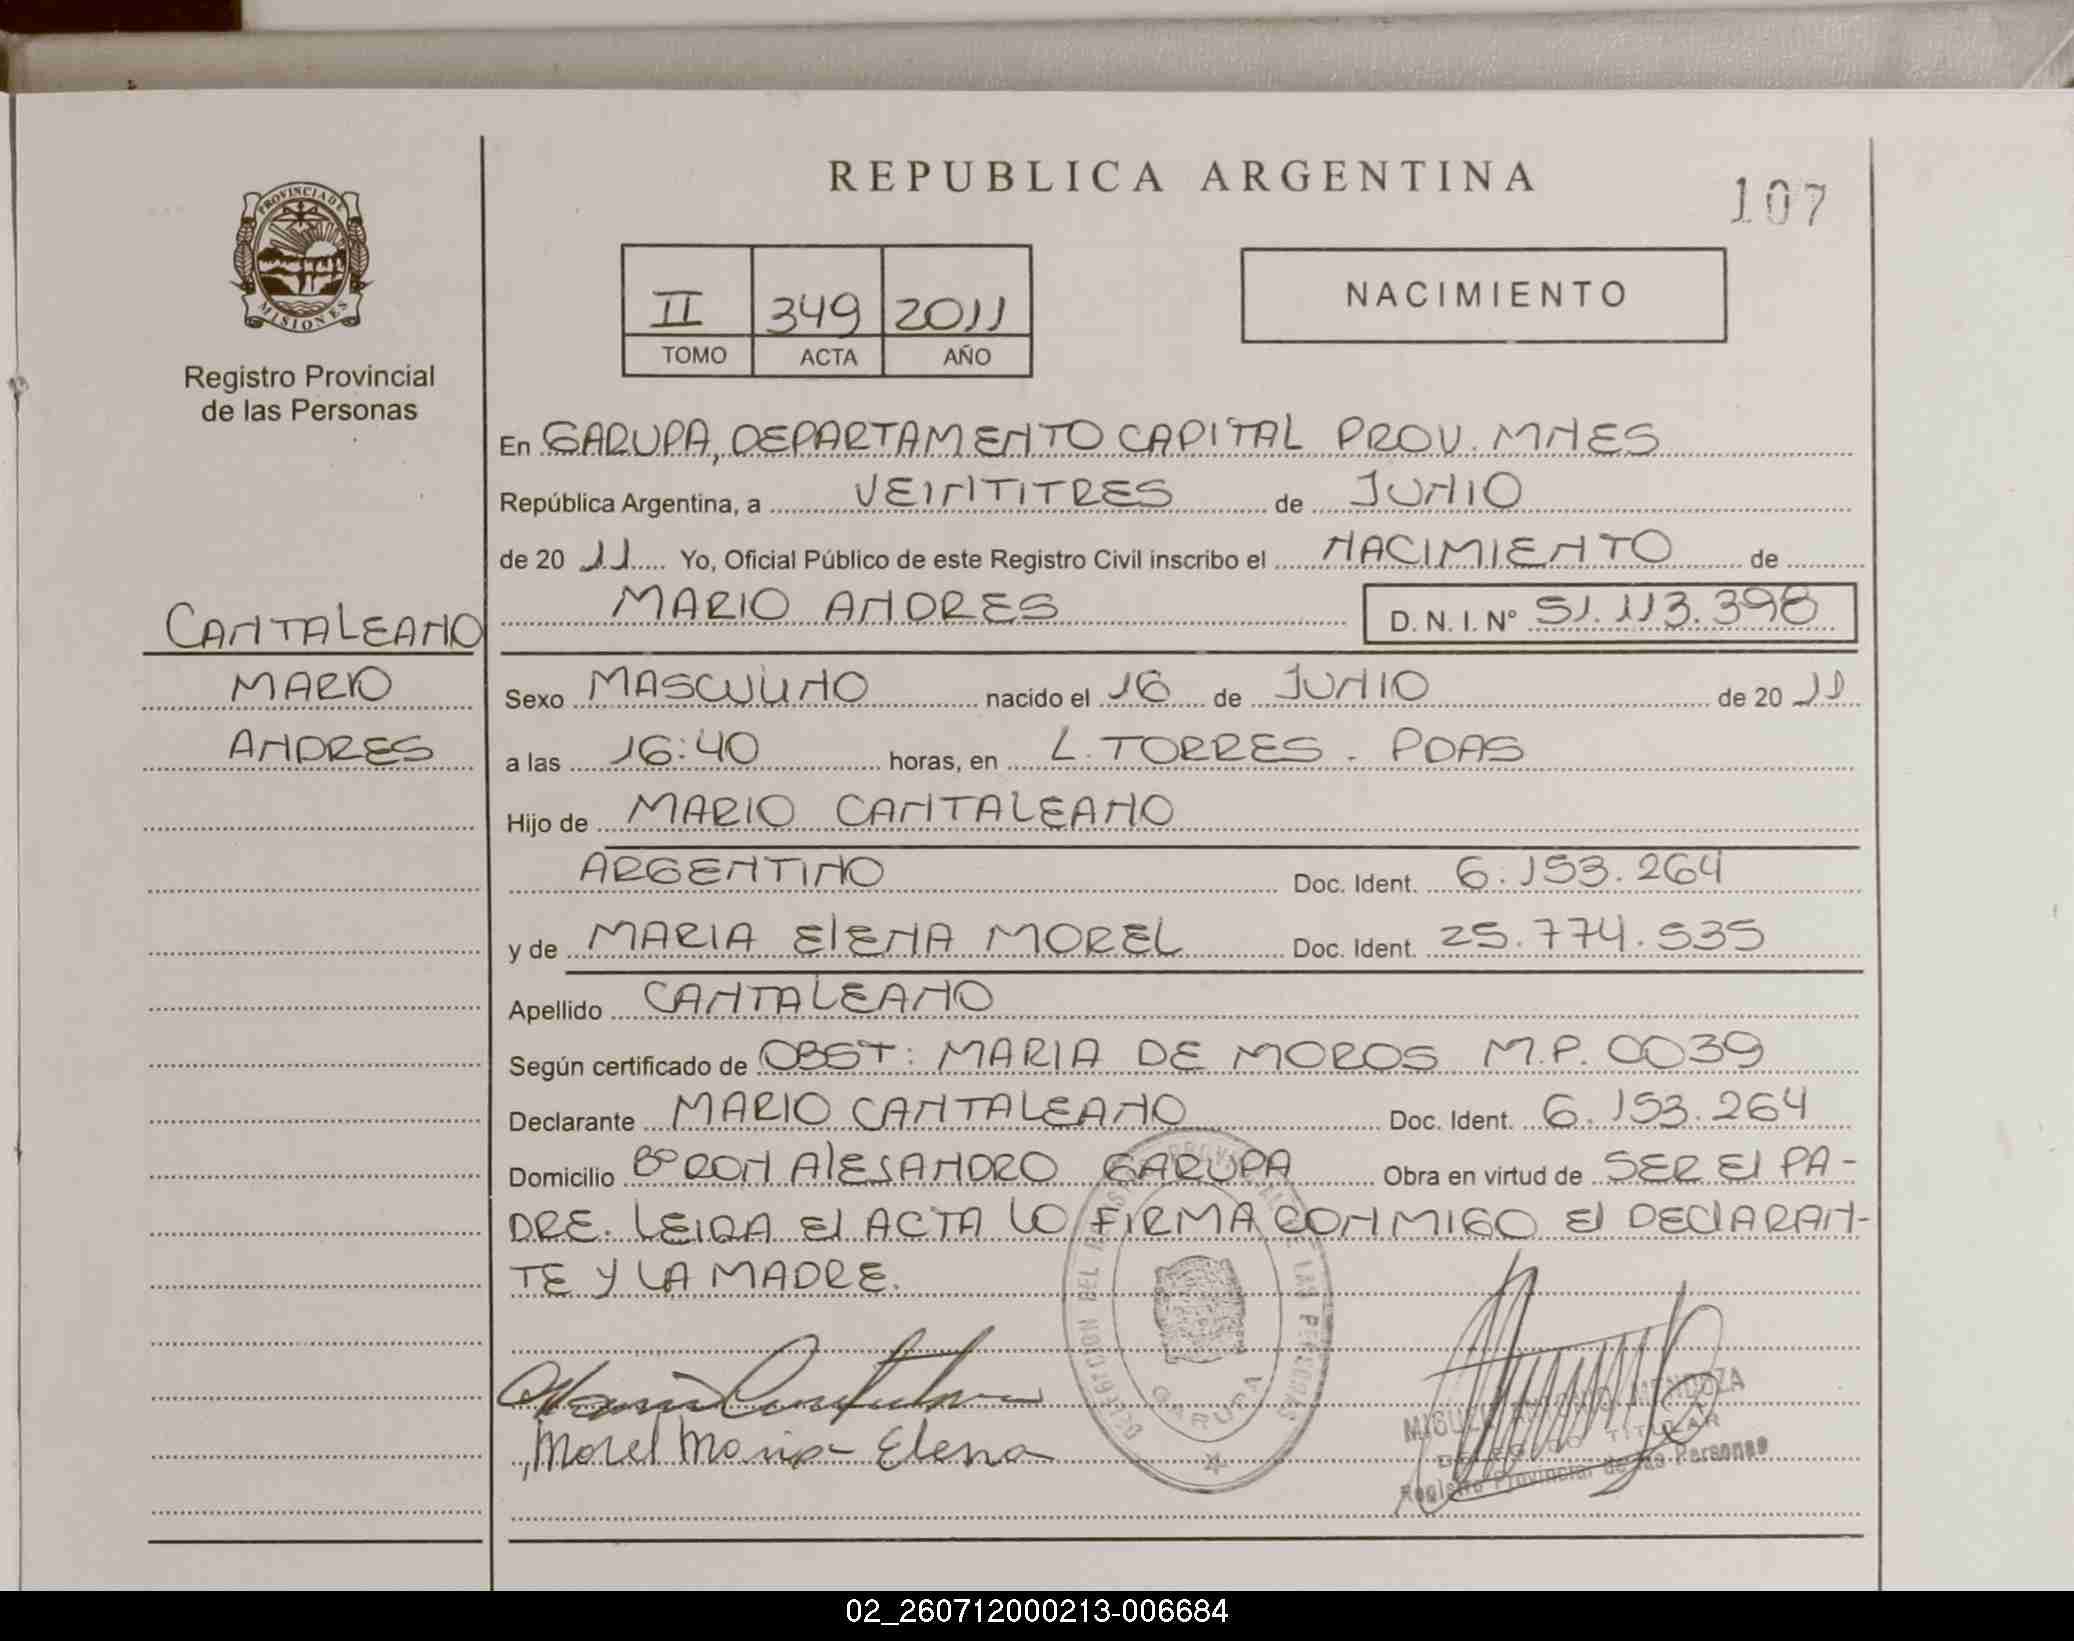 REPUBLICA ARGENTINA
107
PROVINCIA DE
MISIONES
Registro Provincial
de las Personas
II 349 2011
TOMO ACTA AÑO
NACIMIENTO
En GARUPA, DEPARTAMENTO CAPITAL PROV. MNES
República Argentina, a VEINTITRES de JUNIO
de 20 11 Yo, Oficial Público de este Registro Civil inscribo el NACIMIENTO de
MARIO ANDRES D. N. I. N° 51.113.398
CANTALEANO
MARIO
ANDRES
Sexo MASCULINO nacido el 16 de JUNIO de 20 11
a las 16:40 horas, en L. TORRES - PDAS
Hijo de MARIO CANTALEANO
ARGENTINO Doc. Ident. 6.153.264
y de MARIA ElENA MOREL Doc. Ident. 25.774.535
Apellido CANTALEANO
Según certificado de OBST: MARIA DE MOROS M.P. 0039
Declarante MARIO CANTALEANO Doc. Ident. 6.153.264
Domicilio B° RON AlEJANDRO GARUPA Obra en virtud de SER El PA-
DRE. LEIDA El ACTA LO FIRMA CONMIGO El DEClARAN-
TE Y LA MADRE.
DELEGACION DEL REGISTRO PROVINCIAL DE LAS PERSONAS
GARUPA
Morel Maria Elena
MIGUEL ANTONIO MENDOZA
DELEGADO TITULAR
Registro Provincial de las Personas
02_260712000213-006684